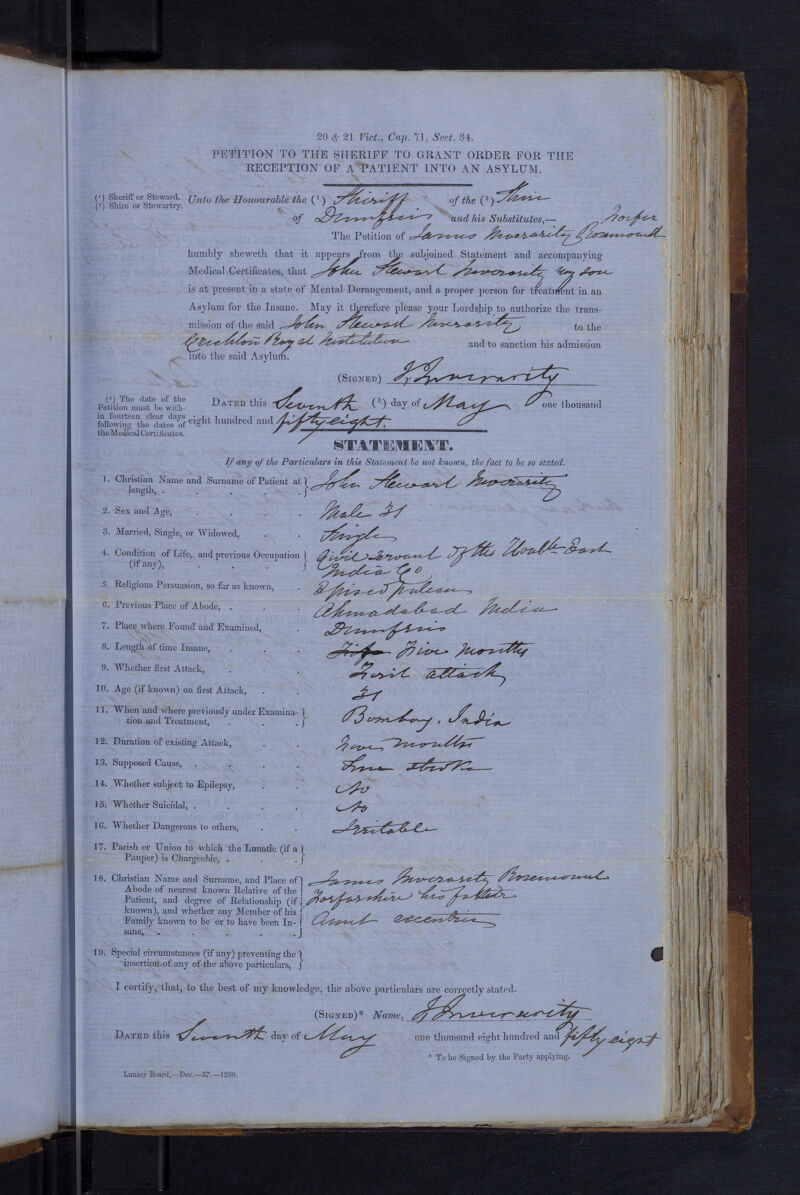 20 & 21 Vict., Cap. 71, Sect. 34.
PETITION TO THE SHERIFF TO GRANT ORDER FOR THE
RECEPTION OF A PATIENT INTO AN ASYLUM.
(¹) Sheriff or Steward.
(²) Shire or Stewartry.
Unto the Honourable the (¹) Sheriff of the (²) Shire
of Dumfries and his Substitutes,—
The Petition of James Inverarity Rosemount Forfar
humbly sheweth that it appears from the subjoined Statement and accompanying
Medical Certificates, that John Stewart Inverarity my son
is at present in a state of Mental Derangement, and a proper person for treatment in an
Asylum for the Insane. May it therefore please your Lordship to authorize the trans-
mission of the said John Stewart Inverarity to the
Crichton Royal Institution and to sanction his admission
into the said Asylum.
(SIGNED) J. Inverarity
(³) The date of the
Petition must be with-
in fourteen clear days
following the dates of
the Medical Certificates.
DATED this Seventh (³) day of May one thousand
eight hundred and fifty eight.
STATEMENT.
If any of the Particulars in this Statement be not known, the fact to be so stated.
1. Christian Name and Surname of Patient at
length, . John Stewart Inverarity
2. Sex and Age, Male 31
3. Married, Single, or Widowed, Single
4. Condition of Life, and previous Occupation
(if any), Civil Servant of the Honble East
India Co
5. Religious Persuasion, so far as known, Episcopalean
6. Previous Place of Abode, . Ahmadabad India
7. Place where Found and Examined, Dumfries
8. Length of time Insane, Five Months
9. Whether first Attack, First attack
10. Age (if known) on first Attack, 31
11. When and where previously under Examina-
tion and Treatment, Bombay, India
12. Duration of existing Attack, Five months
13. Supposed Cause, . Sun stroke
14. Whether subject to Epilepsy, No
15. Whether Suicidal, . No
16. Whether Dangerous to others, Irritable
17. Parish or Union to which the Lunatic (if a
Pauper) is Chargeable, .
18. Christian Name and Surname, and Place of
Abode of nearest known Relative of the
Patient, and degree of Relationship (if
known), and whether any Member of his
Family known to be or to have been In-
sane, .
James Inverarity Rosemount
Forfarshire his father
Aunt eccentric
19. Special circumstances (if any) preventing the
insertion of any of the above particulars,
I certify, that, to the best of my knowledge, the above particulars are correctly stated.
(SIGNED)* Name, J Inverarity
DATED this Seventh day of May one thousand eight hundred and fifty eight
* To be Signed by the Party applying.
Lunacy Board,—Dec.—57.—1200.